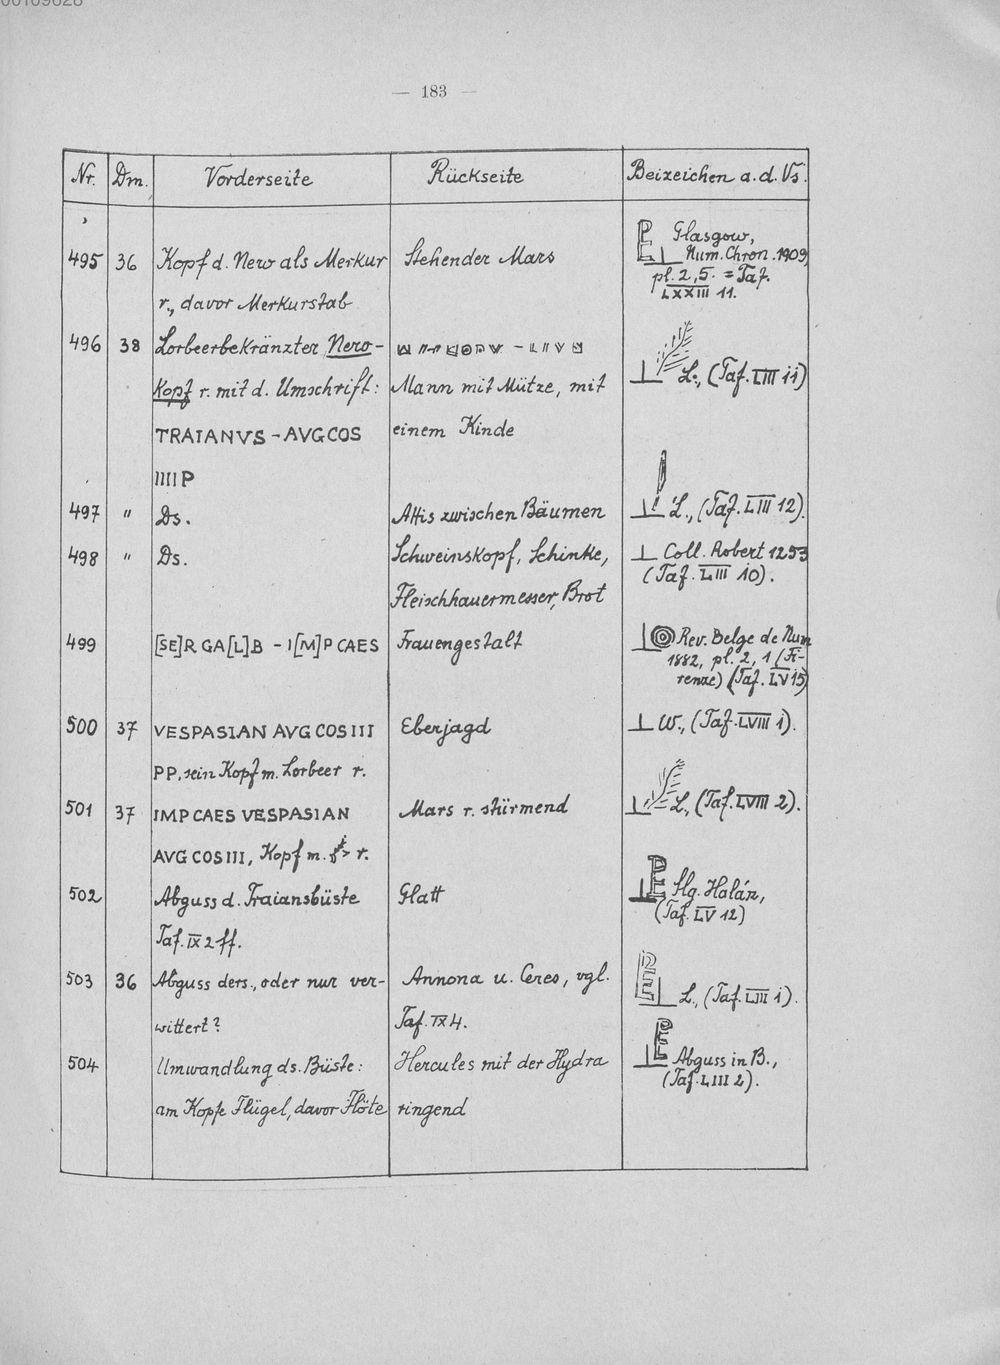 — 183 —
Nr. Dm. Vorderseite Rückseite Beizeichen a. d. Vs.
495 36 Kopf d. Nero als Merkur Stehender Mars Glasgow,
Num. Chron. 1909,
pl. 2, 5. = Taf.
LXXIII 11.
r., davor Merkurstab
496 38 Lorbeerbekränzter Nero-
Kopf r. mit d. Umschrift: Mann mit Mütze, mit L., (Taf. LIII 11)
TRAIANVS – AVG COS einem Kinde
IIII P
497 " Ds. Attis zwischen Bäumen L., (Taf. LIII 12).
498 " Ds. Schweinskopf, Schinke, Coll. Robert 1253
(Taf. LIII 10).
Fleischhauermesser, Brot
499 [SE]R GA[L]B – I[M]P CAES Frauengestalt Rev. Belge de Num
1882, pl. 2, 1 (Fi-
renze) (Taf. LV 15)
500 37 VESPASIAN AVG COS III Eberjagd W., (Taf. LVIII 1).
PP, sein Kopf m. Lorbeer r.
501 37 IMP CAES VESPASIAN Mars r. stürmend L., (Taf. LVIII 2).
AVG COS III, Kopf m. r.
502 Abguss d. Traiansbüste Glatt Slg. Halár,
(Taf. LV 12)
Taf. IX 2 ff.
503 36 Abguss ders., oder nur ver- Annona u. Ceres, vgl. L., (Taf. LIII 1).
wittert? Taf. IX 4.
504 Umwandlung ds. Büste: Hercules mit der Hydra Abguss in B.,
(Taf. LIII 2).
am Kopfe Flügel, davor Flöte ringend